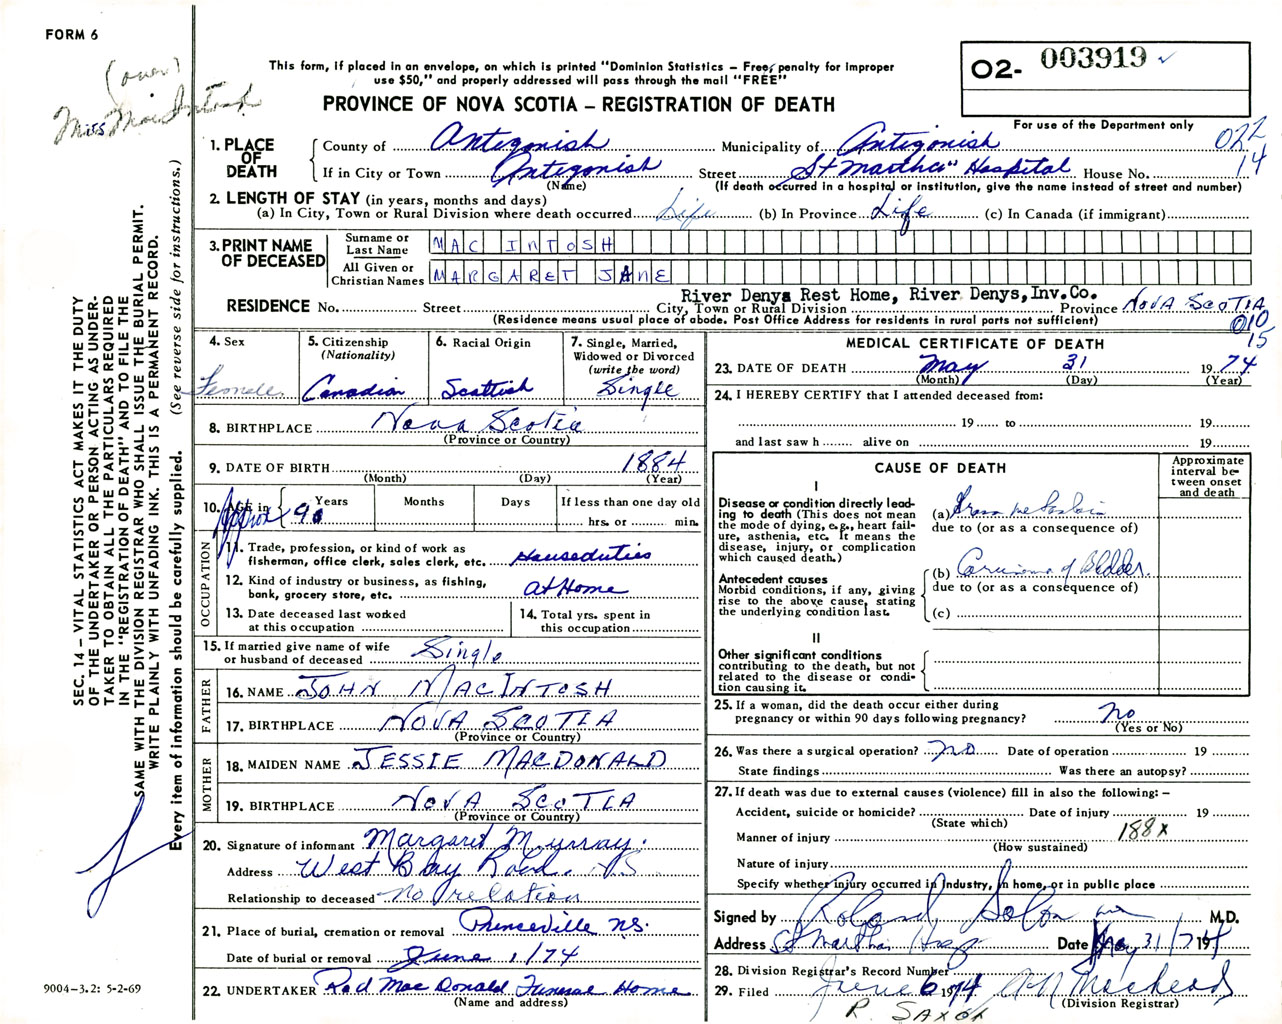 FORM 6
(over)
Miss MacIntosh
This form, if placed in an envelope, on which is printed "Dominion Statistics – Free, penalty for improper
use $50," and properly addressed will pass through the mail "FREE"
PROVINCE OF NOVA SCOTIA – REGISTRATION OF DEATH
O2- 003919 ✓
For use of the Department only
022
14
1. PLACE OF DEATH
County of Antigonish Municipality of Antigonish
If in City or Town Antigonish Street St Martha's Hospital House No.
(Name) (If death occurred in a hospital or institution, give the name instead of street and number)
2. LENGTH OF STAY (in years, months and days)
(a) In City, Town or Rural Division where death occurred Life (b) In Province Life (c) In Canada (if immigrant)
3. PRINT NAME OF DECEASED
Surname or Last Name MAC INTOSH
All Given or Christian Names MARGARET JANE
River Denys Rest Home, River Denys, Inv. Co.
RESIDENCE No. Street City, Town or Rural Division Province NOVA SCOTIA
(Residence means usual place of abode. Post Office Address for residents in rural parts not sufficient)
010
15
SEC. 14 – VITAL STATISTICS ACT MAKES IT THE DUTY
OF THE UNDERTAKER OR PERSON ACTING AS UNDER-
TAKER TO OBTAIN ALL THE PARTICULARS REQUIRED
IN THE "REGISTRATION OF DEATH" AND TO FILE THE
SAME WITH THE DIVISION REGISTRAR WHO SHALL ISSUE THE BURIAL PERMIT.
WRITE PLAINLY WITH UNFADING INK. THIS IS A PERMANENT RECORD.
Every item of information should be carefully supplied. (See reverse side for instructions.)
4. Sex
Female
5. Citizenship
(Nationality)
Canadian
6. Racial Origin
Scottish
7. Single, Married,
Widowed or Divorced
(write the word)
Single
8. BIRTHPLACE Nova Scotia
(Province or Country)
9. DATE OF BIRTH 1884
(Month) (Day) (Year)
10. AGE in Years Months Days If less than one day old
Approx 90 hrs. or min.
OCCUPATION
11. Trade, profession, or kind of work as
fisherman, office clerk, sales clerk, etc. Houseduties
12. Kind of industry or business, as fishing,
bank, grocery store, etc. At Home
13. Date deceased last worked
at this occupation
14. Total yrs. spent in
this occupation
15. If married give name of wife
or husband of deceased Single
FATHER
16. NAME JOHN MACINTOSH
17. BIRTHPLACE NOVA SCOTIA
(Province or Country)
MOTHER
18. MAIDEN NAME JESSIE MACDONALD
19. BIRTHPLACE NOVA SCOTIA
(Province or Country)
20. Signature of informant Margaret Murray.
Address West Bay Road. NS
Relationship to deceased no relation
21. Place of burial, cremation or removal Princeville NS.
Date of burial or removal June 1/74
22. UNDERTAKER Rod MacDonald Funeral Home
(Name and address)
MEDICAL CERTIFICATE OF DEATH
23. DATE OF DEATH May 31 1974
(Month) (Day) (Year)
24. I HEREBY CERTIFY that I attended deceased from:
19 to 19
and last saw h alive on 19
CAUSE OF DEATH
Approximate
interval be-
tween onset
and death
I
Disease or condition directly lead-
ing to death (This does not mean
the mode of dying, e.g., heart fail-
ure, asthenia, etc. It means the
disease, injury, or complication
which caused death.)
(a)
due to (or as a consequence of)
Antecedent causes
Morbid conditions, if any, giving
rise to the above cause, stating
the underlying condition last.
(b) Carcinoma of Bladder.
due to (or as a consequence of)
(c)
II
Other significant conditions
contributing to the death, but not
related to the disease or condi-
tion causing it.
25. If a woman, did the death occur either during
pregnancy or within 90 days following pregnancy? no
(Yes or No)
26. Was there a surgical operation? no Date of operation 19
State findings Was there an autopsy?
27. If death was due to external causes (violence) fill in also the following: –
Accident, suicide or homicide? Date of injury 19
(State which)
188X
Manner of injury
(How sustained)
Nature of injury
Specify whether injury occurred in industry, in home, or in public place
Signed by Roland M.D.
Address St Martha's Hosp Date May 31/74 19
28. Division Registrar's Record Number
29. Filed June 6 1974
(Division Registrar)
R. SAXON
9004-3.2: 5-2-69